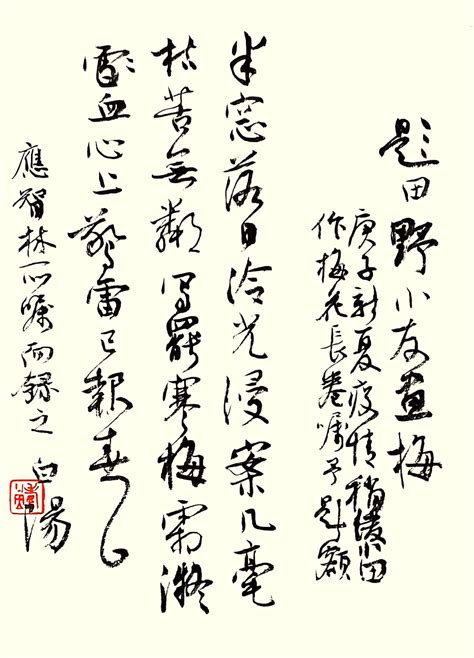 題田野小友畫梅
庚子新夏疫情稍緩小田
作梅花長卷囑予題額
半窓落日冷光浸案几毫
枯苦無鄰寫罷寒梅霜凝
血心上驚雷已報春
應智林所囑而錄之 白湯